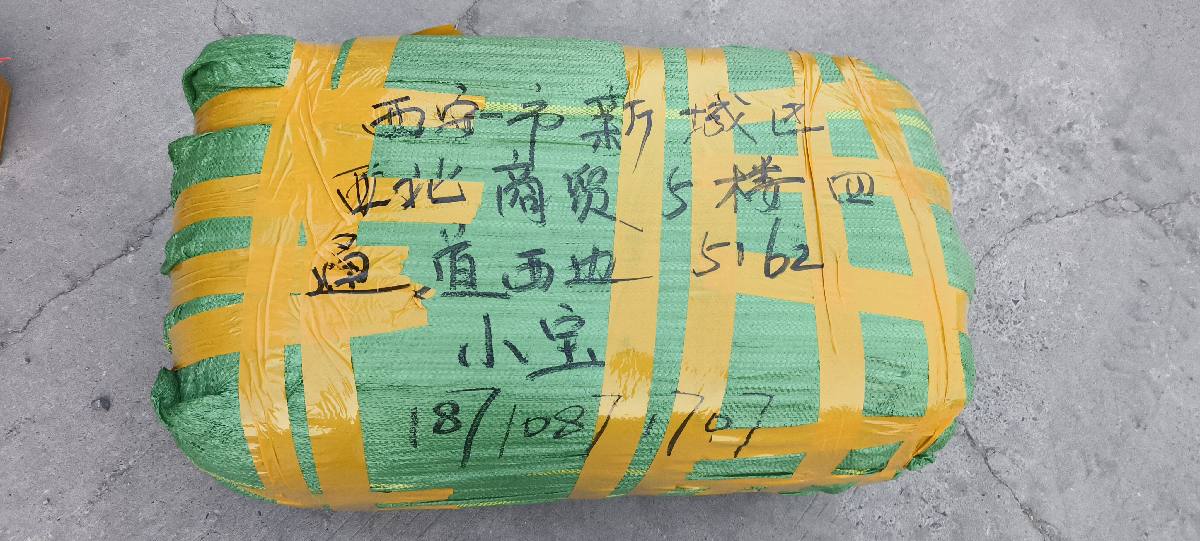 西安市新城区
西北商贸5楼四
通道西边 5162
小宝
18710871707